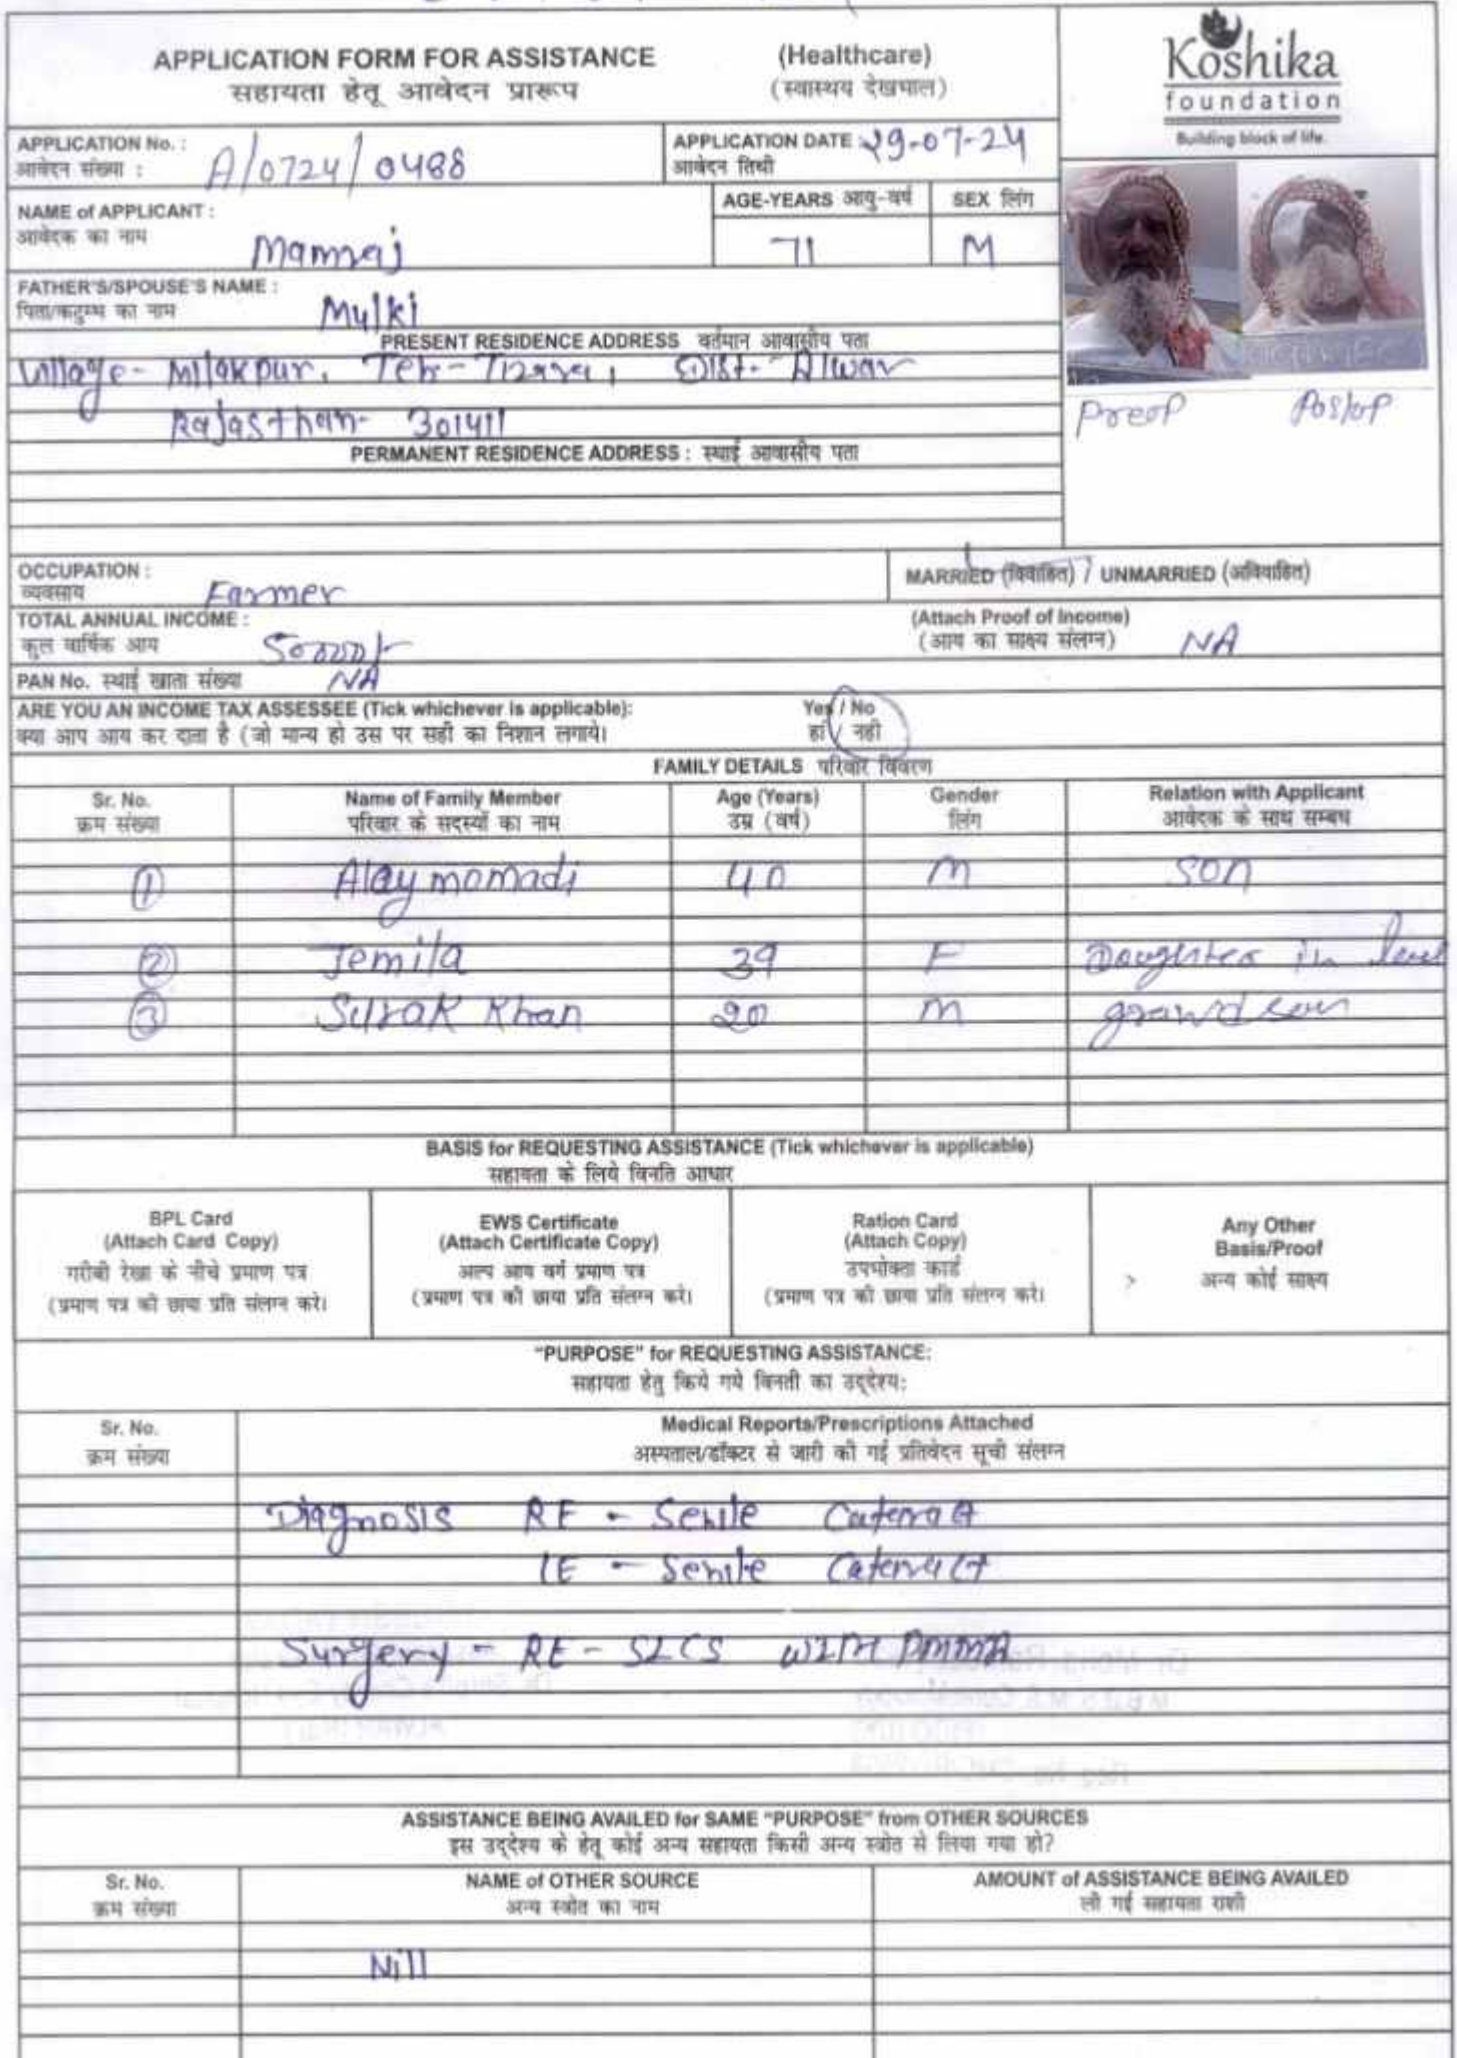 APPLICATION FORM FOR ASSISTANCE (Healthcare)
सहायता हेतू आवेदन प्रारूप (स्वास्थय देखभाल)
Koshika
foundation
Building block of life.
APPLICATION No. :
आवेदन संख्या : A/0724/0488
APPLICATION DATE : 29-07-24
आवेदन तिथी
NAME of APPLICANT :
आवेदक का नाम Mamraj
AGE-YEARS आयु-वर्ष SEX लिंग
71 M
FATHER'S/SPOUSE'S NAME :
पिता/कटुम्भ का नाम Mulki
PRESENT RESIDENCE ADDRESS वर्तमान आवासीय पता
Village- Milakpur, Teh- Tizara, Dist- Alwar
Rajasthan- 301411
Preop Postop
PERMANENT RESIDENCE ADDRESS : स्थाई आवासीय पता
OCCUPATION :
व्यवसाय Farmer
MARRIED (विवाहित) / UNMARRIED (अविवाहित)
TOTAL ANNUAL INCOME :
कुल वार्षिक आय
(Attach Proof of Income)
(आय का साक्ष्य संलग्न) NA
PAN No. स्थाई खाता संख्या NA
ARE YOU AN INCOME TAX ASSESSEE (Tick whichever is applicable): Yes / No
क्या आप आय कर दाता है (जो मान्य हो उस पर सही का निशान लगाये। हां / नही
FAMILY DETAILS परिवार विवरण
Sr. No. Name of Family Member Age (Years) Gender Relation with Applicant
क्रम संख्या परिवार के सदस्यों का नाम उम्र (वर्ष) लिंग आवेदक के साथ सम्बध
1 Alaymomadi 40 M son
2 Jemila 39 F Daughter in law
3 Surak Khan 20 M grand son
BASIS for REQUESTING ASSISTANCE (Tick whichever is applicable)
सहायता के लिये विनति आधार
BPL Card
(Attach Card Copy)
गरीबी रेखा के नीचे प्रमाण पत्र
(प्रमाण पत्र की छाया प्रति संलग्न करे।
EWS Certificate
(Attach Certificate Copy)
अल्प आय वर्ग प्रमाण पत्र
(प्रमाण पत्र की छाया प्रति संलग्न करे।
Ration Card
(Attach Copy)
उपभोक्ता कार्ड
(प्रमाण पत्र की छाया प्रति संलग्न करे।
Any Other
Basis/Proof
अन्य कोई साक्ष्य
"PURPOSE" for REQUESTING ASSISTANCE:
सहायता हेतु किये गये विनती का उद्देश्य:
Sr. No. Medical Reports/Prescriptions Attached
क्रम संख्या अस्पताल/डॉक्टर से जारी की गई प्रतिवेदन सूची संलग्न
Diagnosis RE - Senile Cateract
LE - Senile Cateract
Surgery - RE - SICS WITH PMMA
ASSISTANCE BEING AVAILED for SAME "PURPOSE" from OTHER SOURCES
इस उद्देश्य के हेतू कोई अन्य सहायता किसी अन्य स्त्रोत से लिया गया हो?
Sr. No. NAME of OTHER SOURCE AMOUNT of ASSISTANCE BEING AVAILED
क्रम संख्या अन्य स्त्रोत का नाम ली गई सहायता राशी
Nill